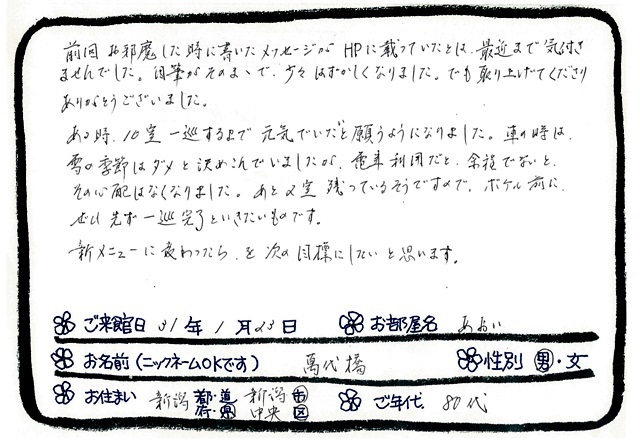 前回お邪魔した時に書いたメッセージがHPに載っていたとは、最近まで気付き
ませんでした。自筆がそのまゝで、少々はずかしくなりました。でも取り上げてくださり
ありがとうございました。
ある時、10室一巡するまで元気でいたいと願うようになりました。車の時は、
雪の季節はダメと決めこんでいましたが、電車利用だと、余程でないと、
その心配はなくなりました。あと2室残っているそうですので、ボケル前に、
ぜひ先ず一巡完了といきたいものです。
新メニューに変わったら、を次の目標にしたいと思います。
ご来館日 31年1月23日 お部屋名 あおい
お名前(ニックネームOKです) 萬代橋 性別 男・女
お住まい 新潟 都・道・府・県 新潟 市 中央 区 ご年代 80代